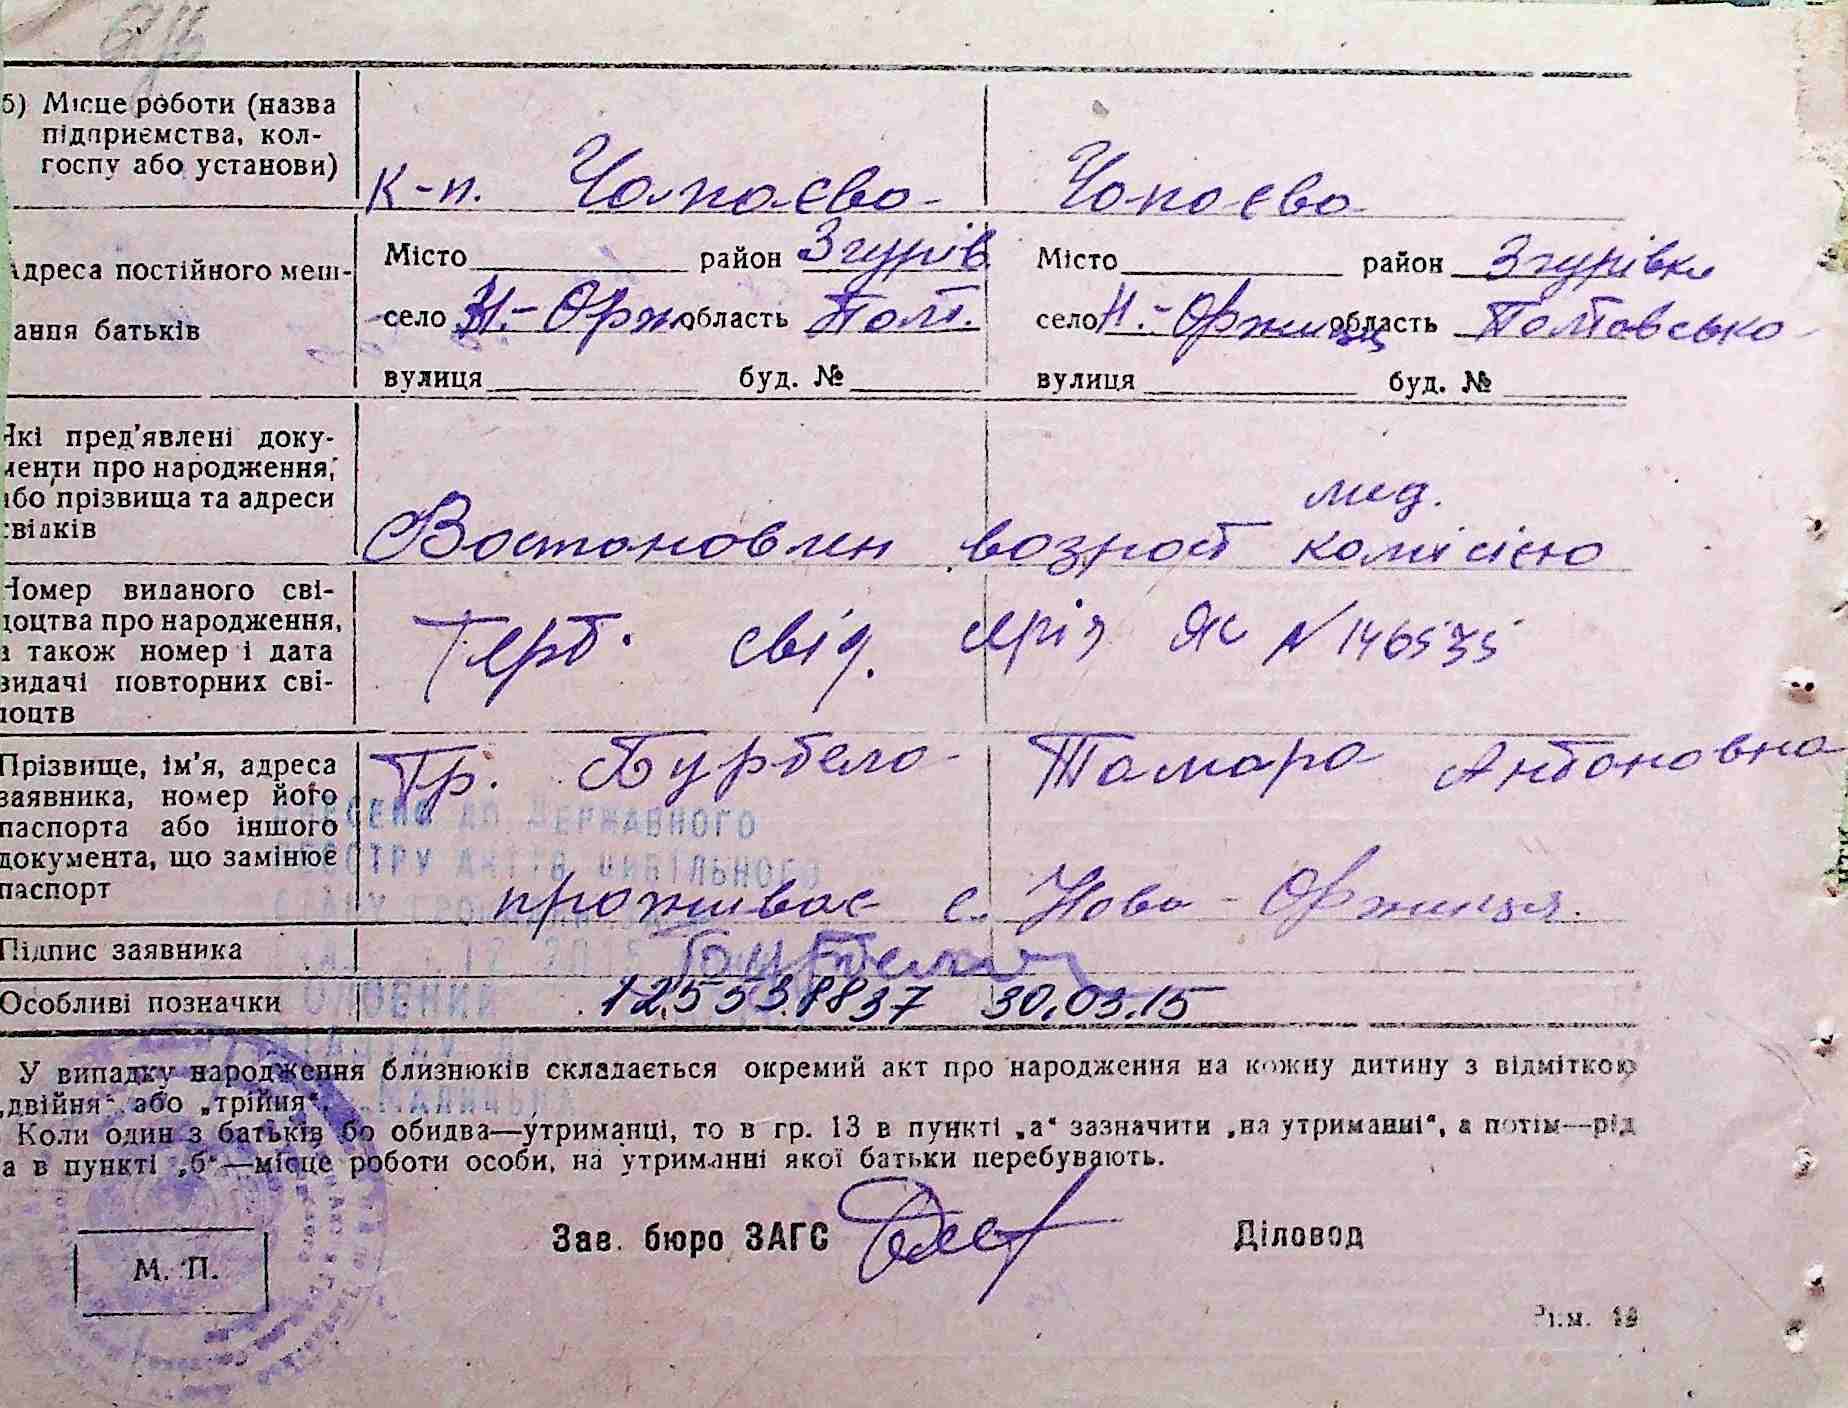 б) Місце роботи (назва
підприємства, кол-
госпу або установи)
к-п. Чапаєва Чапаєва
Адреса постійного меш-
кання батьків
Місто район Згурів Місто район Згурівка
село Н.-Орж. область Полт. село Н.-Оржиця область Полтавська
вулиця буд. № вулиця буд. №
Які пред'явлені доку-
менти про народження,
або прізвища та адреси
свідків
мед.
Востановлен возраст комісією
Номер виданого сві-
доцтва про народження,
а також номер і дата
видачі повторних сві-
доцтв
Герб. свід. серія ЯС N 146575
Прізвище, ім'я, адреса
заявника, номер його
паспорта або іншого
документа, що замінює
паспорт
Гр. Бурбело Тамара Антоновна
ВНЕСЕНО ДО ДЕРЖАВНОГО
РЕЄСТРУ АКТІВ ЦИВІЛЬНОГО
проживає с. Ново-Оржиця.
Підпис заявника Бурбело
Особливі позначки 12553.8837 30.03.15
У випадку народження близнюків складається окремий акт про народження на кожну дитину з відміткою
„двійня“ або „трійня“.
Коли один з батьків бо обидва—утриманці, то в гр. 13 в пункті „а“ зазначити „на утриманні“, а потім—рід
а в пункті „б“—місце роботи особи, на утриманні якої батьки перебувають.
Зав. бюро ЗАГС Діловод
М. П.